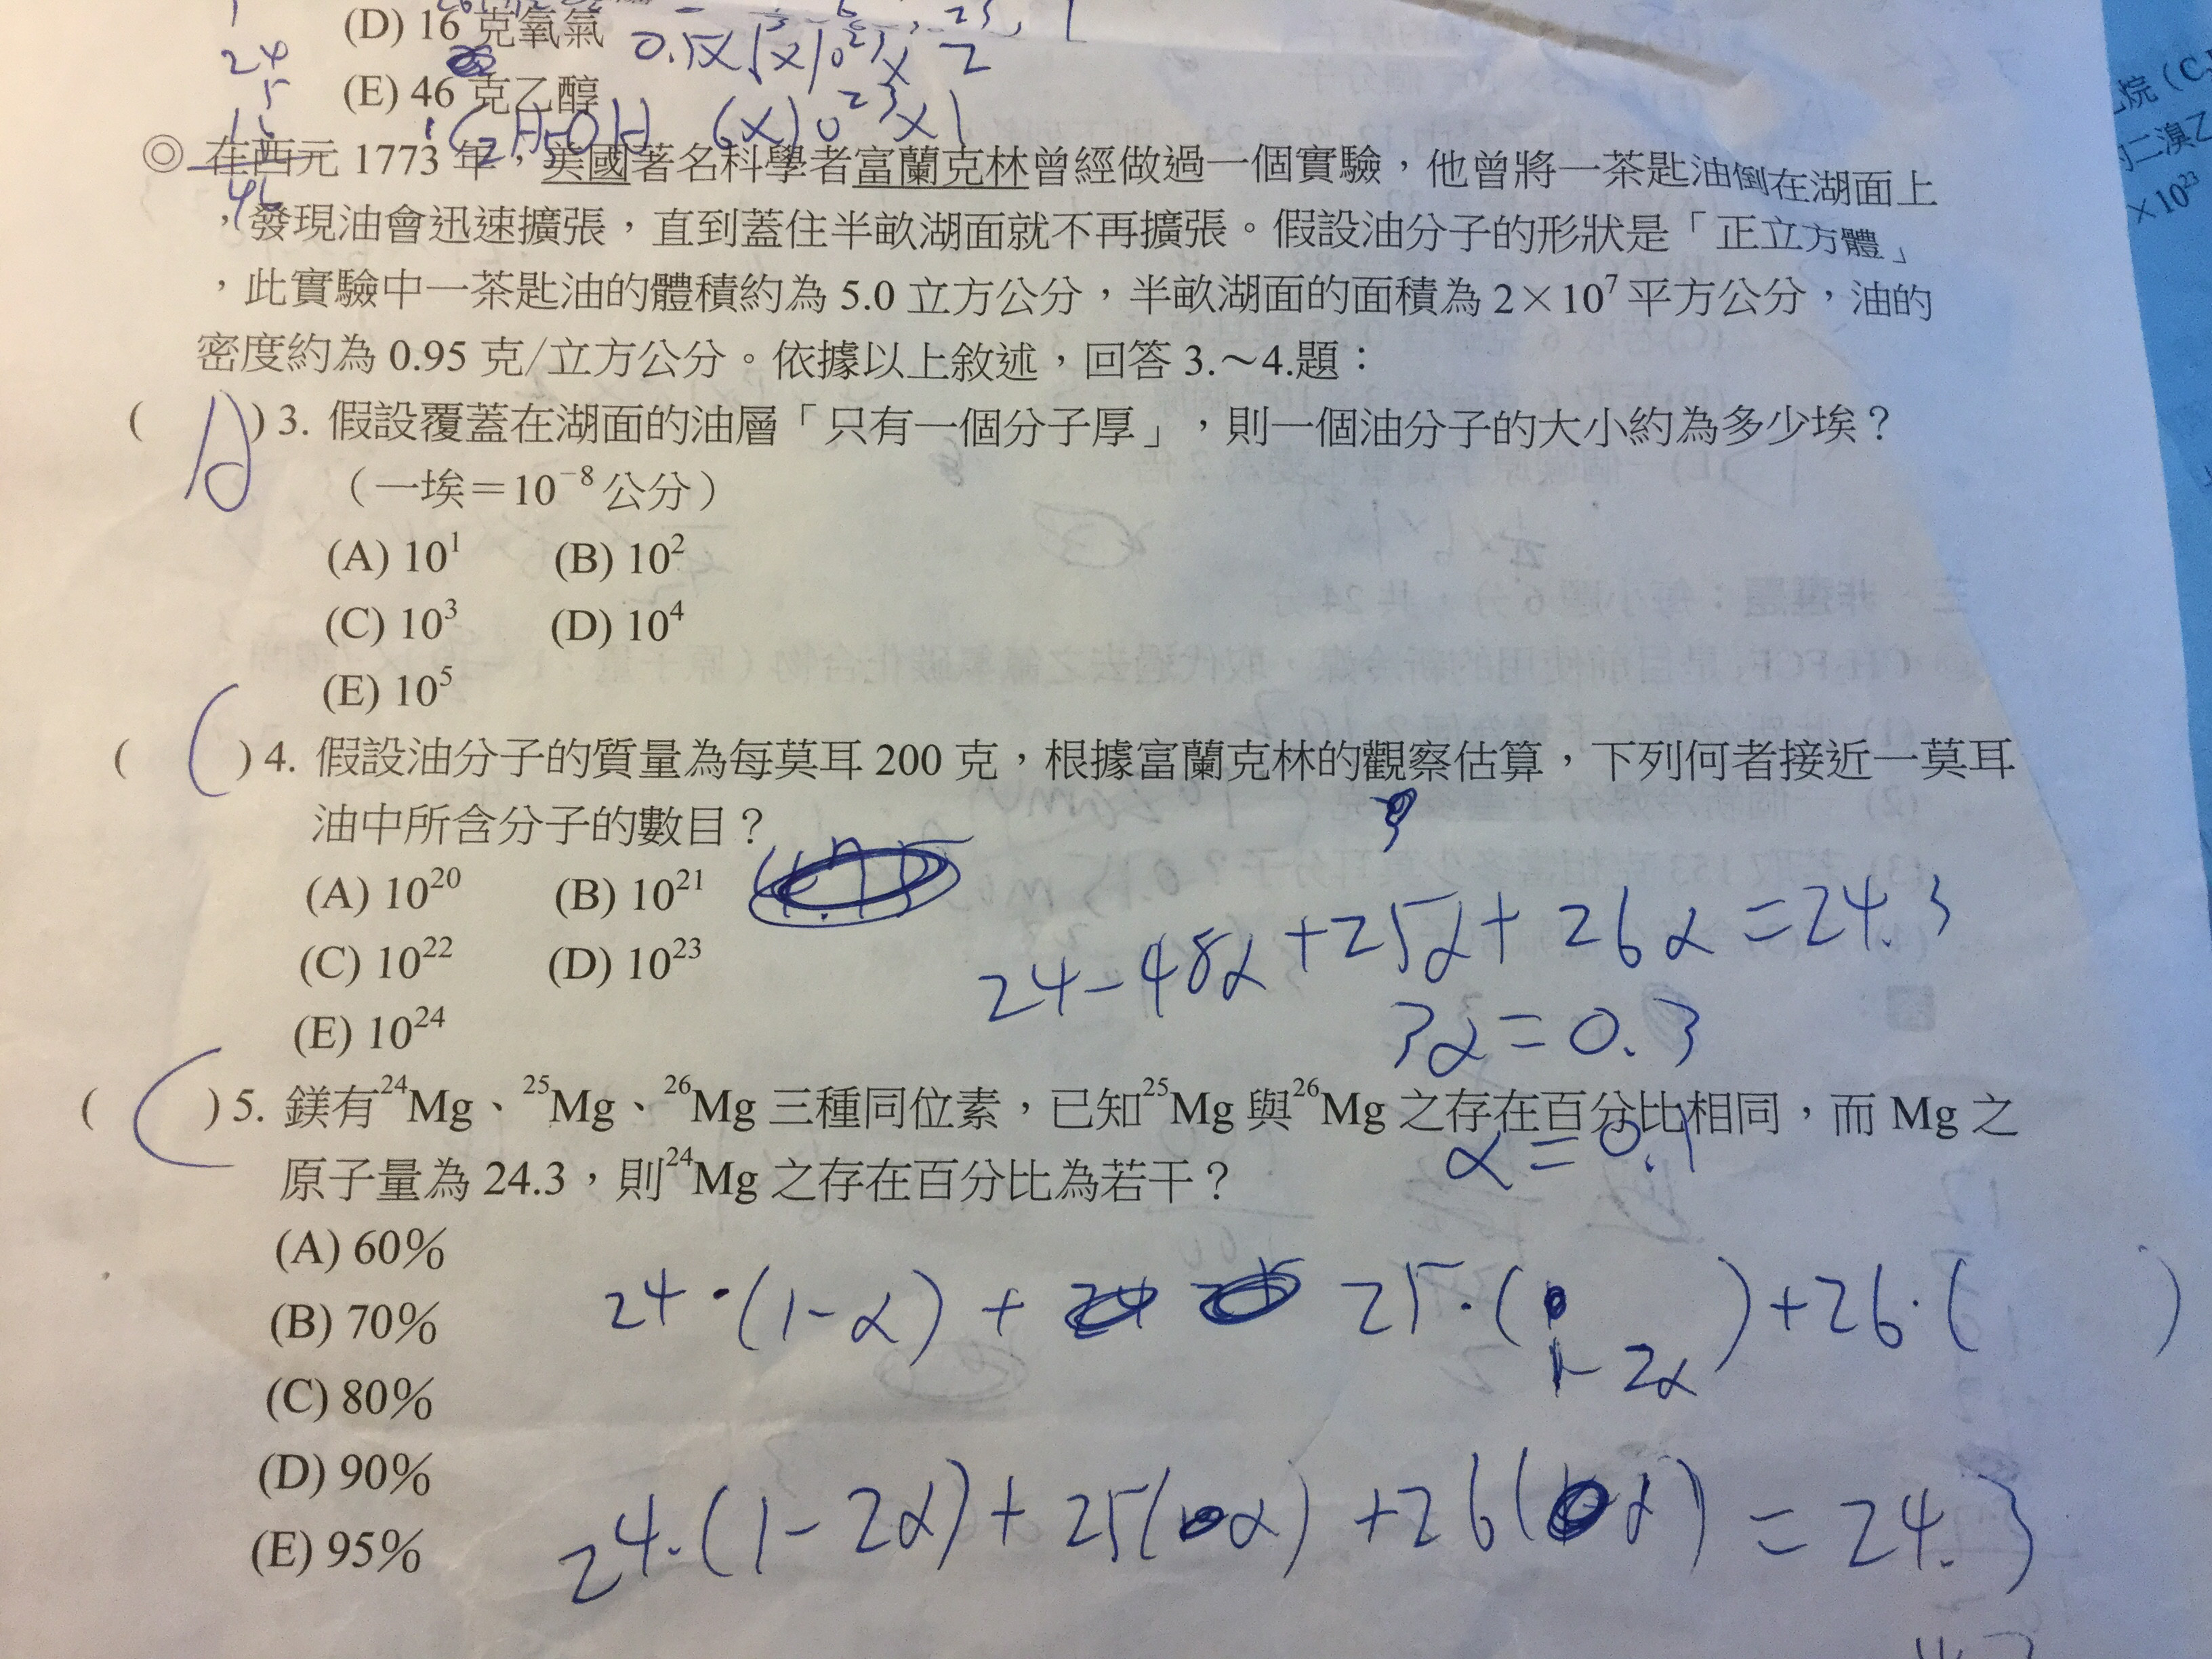 (D) 16 克氧氣
24
5
(E) 46 克乙醇
16
C2H5OH 6×10²³×1
◎ 在西元 1773 年,美國著名科學者富蘭克林曾經做過一個實驗,他曾將一茶匙油倒在湖面上
46
,發現油會迅速擴張,直到蓋住半畝湖面就不再擴張。假設油分子的形狀是「正立方體」
,此實驗中一茶匙油的體積約為 5.0 立方公分,半畝湖面的面積為 2×10⁷ 平方公分,油的
密度約為 0.95 克/立方公分。依據以上敘述,回答 3.~4.題:
( A ) 3. 假設覆蓋在湖面的油層「只有一個分子厚」,則一個油分子的大小約為多少埃?
(一埃=10⁻⁸ 公分)
(A) 10¹ (B) 10²
(C) 10³ (D) 10⁴
(E) 10⁵
( C ) 4. 假設油分子的質量為每莫耳 200 克,根據富蘭克林的觀察估算,下列何者接近一莫耳
油中所含分子的數目?
(A) 10²⁰ (B) 10²¹
(C) 10²² (D) 10²³
24-48α+25α+26α=24.3
(E) 10²⁴
3α=0.3
( C ) 5. 鎂有²⁴Mg、²⁵Mg、²⁶Mg 三種同位素,已知²⁵Mg 與²⁶Mg 之存在百分比相同,而 Mg 之
α=0.1
原子量為 24.3,則²⁴Mg 之存在百分比為若干?
(A) 60%
(B) 70%
24·(1-α)+ 25·( )+26·( )
1-2α
(C) 80%
(D) 90%
(E) 95%
24·(1-2α)+25(α)+26(α)=24.3
烷(C
二溴乙
×10²³